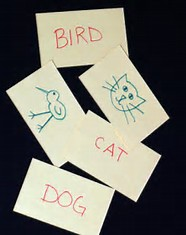 BIRD
CAT
DOG